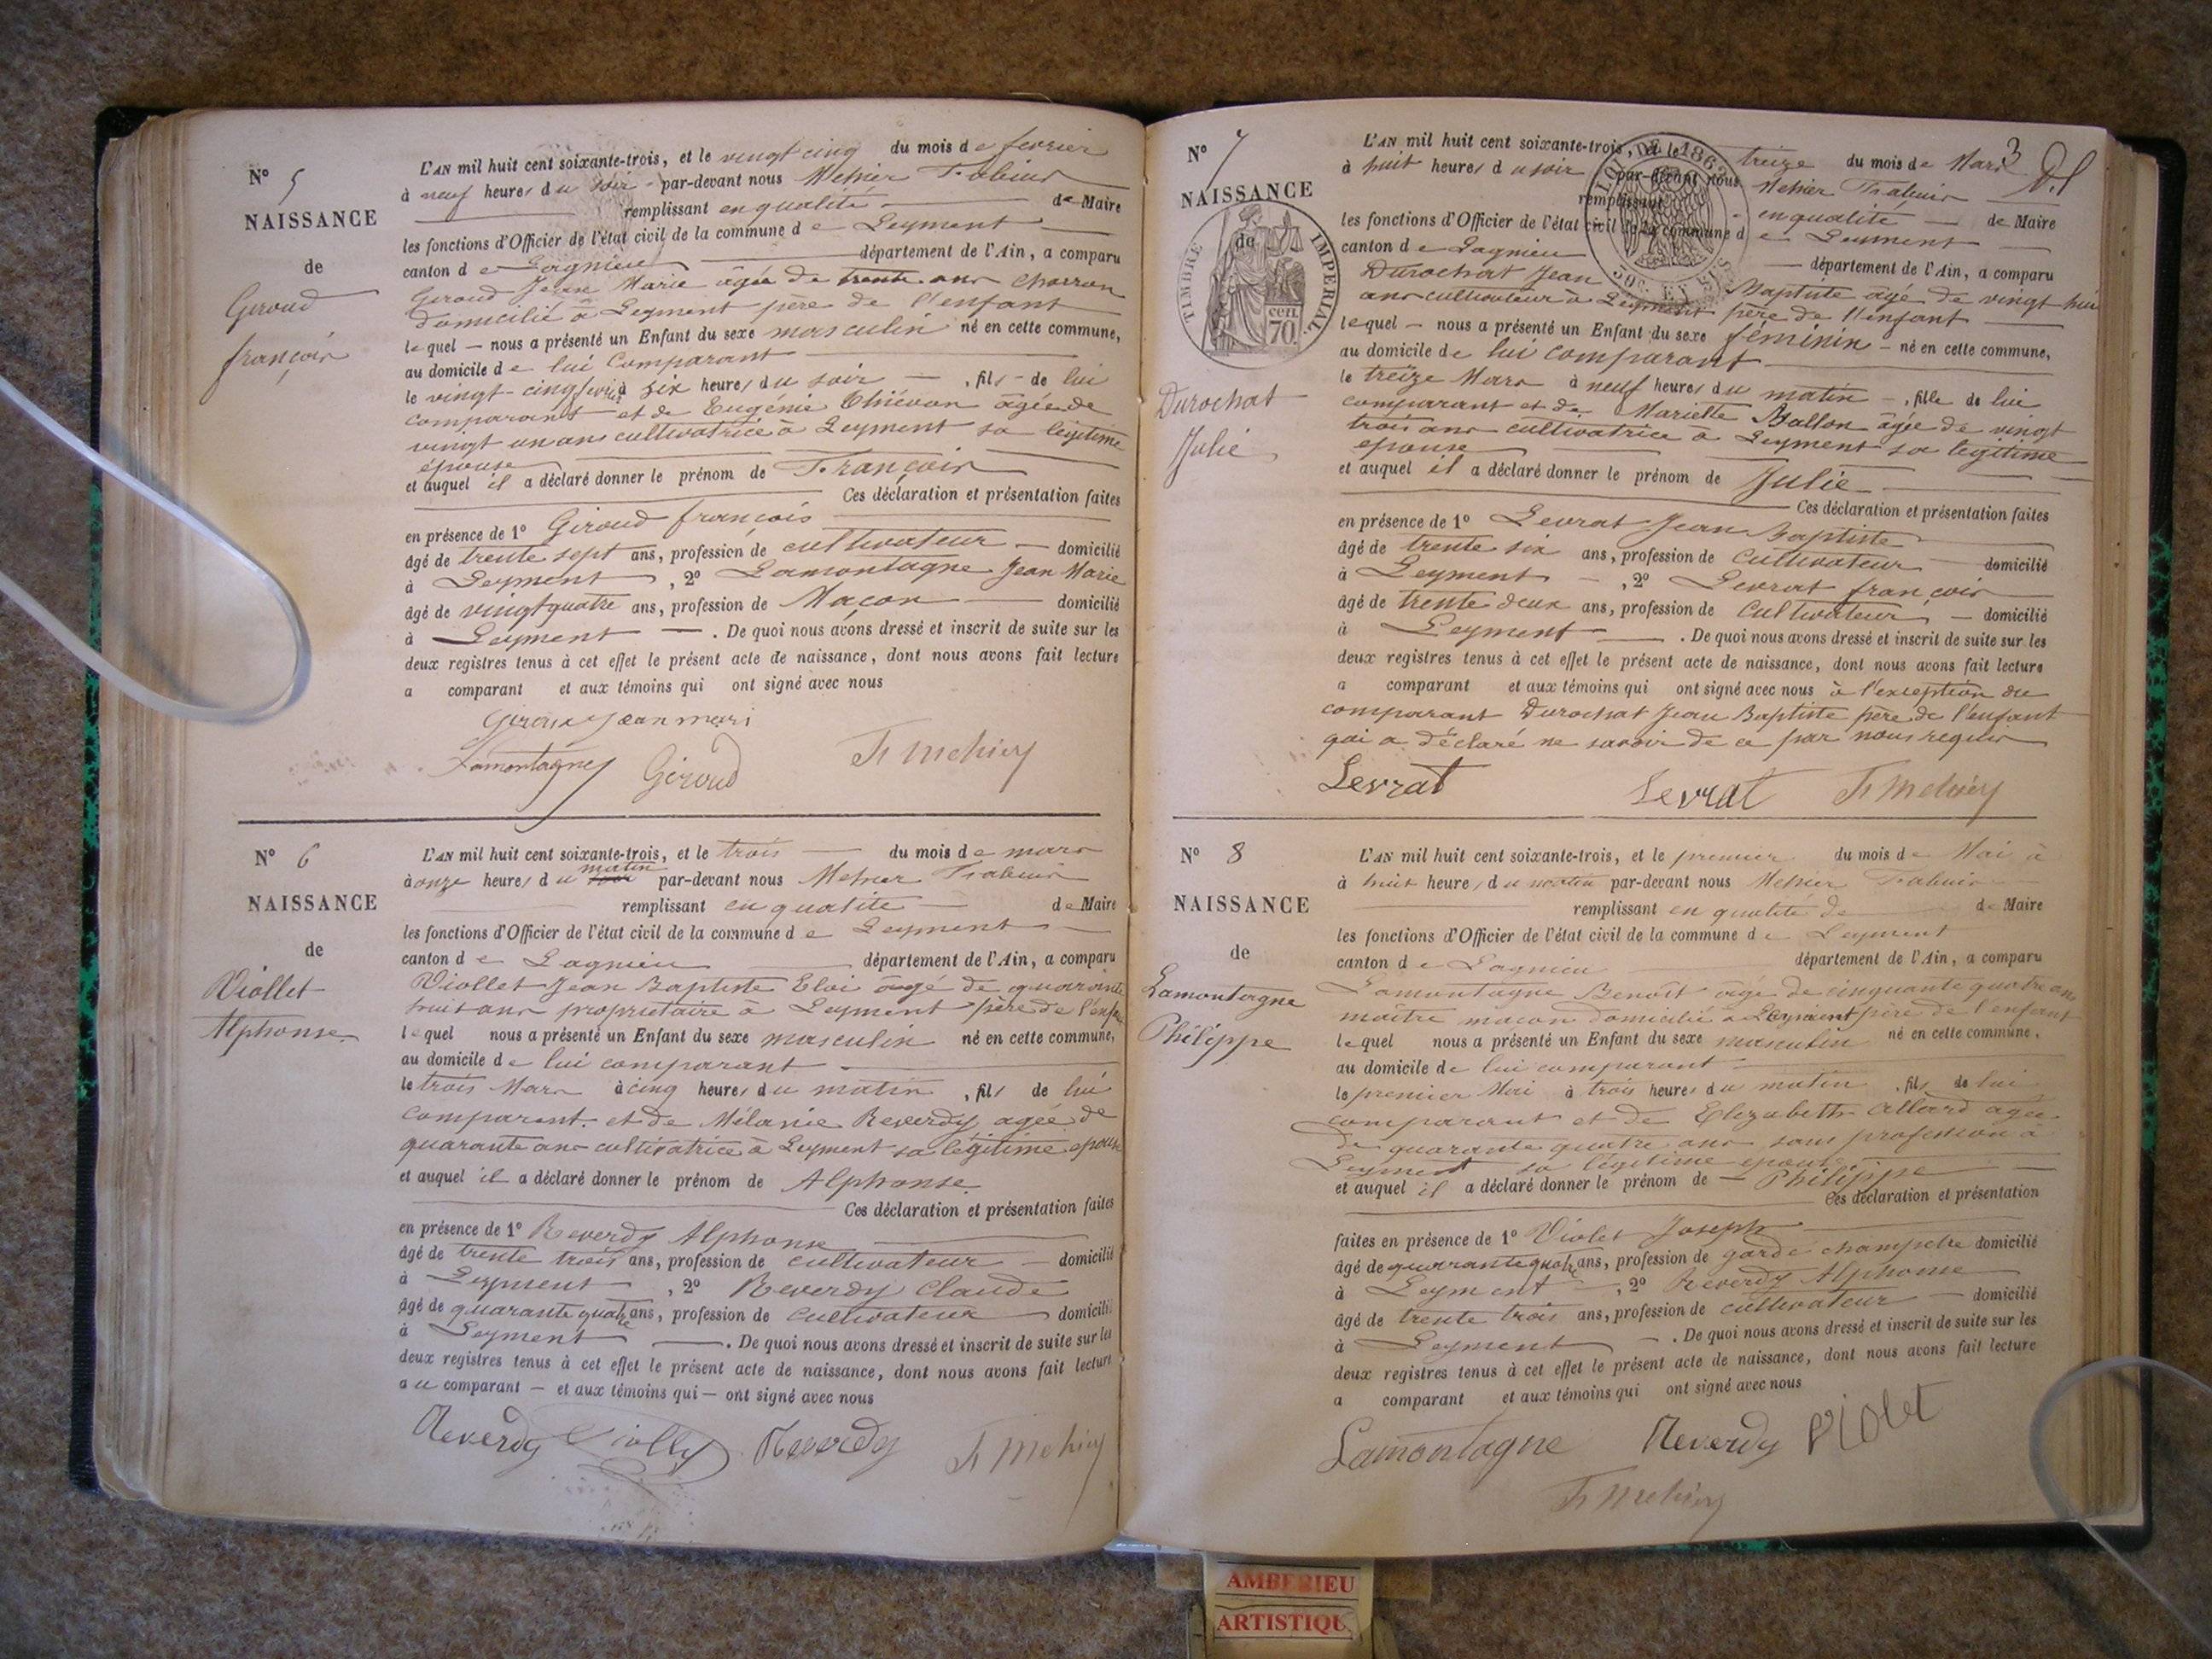 N° 5
NAISSANCE
de
Giroud
françois
L'AN mil huit cent soixante-trois, et le vingt cinq du mois de fevrier
à neuf heures du soir par-devant nous
remplissant en qualité de Maire
les fonctions d'Officier de l'état civil de la commune de Leyment
canton de Lagnieu département de l'Ain, a comparu
Giroud Jean Marie âgée de trente ans charron
domicilié à Leyment père de l'enfant
lequel nous a présenté un Enfant du sexe masculin né en cette commune,
au domicile de lui Comparant
le vingt-cinq à six heures du soir , fils de lui
comparant et de Eugénie âgée de
vingt un ans cultivatrice à Leyment sa légitime
épouse
et auquel il a déclaré donner le prénom de François
Ces déclaration et présentation faites
en présence de 1° Giroud françois
âgé de trente sept ans, profession de cultivateur domicilié
à Leyment , 2° Lamontagne Jean Marie
âgé de vingt quatre ans, profession de Maçon domicilié
à Leyment . De quoi nous avons dressé et inscrit de suite sur les
deux registres tenus à cet effet le présent acte de naissance, dont nous avons fait lecture
a comparant et aux témoins qui ont signé avec nous
jean mari
Lamontagne Giroud
N° 6
NAISSANCE
de
Viollet
Alphonse
L'AN mil huit cent soixante-trois, et le trois du mois de mars
à onze heures du matin par-devant nous
remplissant en qualité de Maire
les fonctions d'Officier de l'état civil de la commune de Leyment
canton de Lagnieu département de l'Ain, a comparu
Viollet Jean Baptiste Eloi âgé de quarante
huit ans propriétaire à Leyment père de l'enfant
lequel nous a présenté un Enfant du sexe masculin né en cette commune,
au domicile de lui comparant
le trois Mars à cinq heures du matin , fils de lui
comparant. et de Mélanie Reverdy agée de
quarante ans cultivatrice à Leyment sa légitime epouse
et auquel il a déclaré donner le prénom de Alphonse
Ces déclaration et présentation faites
en présence de 1° Reverdy Alphonse
âgé de trente trois ans, profession de cultivateur domicilié
à Leyment , 2° Reverdy Claude
âgé de quarante quatre ans, profession de cultivateur domicilié
à Leyment . De quoi nous avons dressé et inscrit de suite sur les
deux registres tenus à cet effet le présent acte de naissance, dont nous avons fait lecture
au comparant et aux témoins qui ont signé avec nous
Reverdy Reverdy
N° 7
3
NAISSANCE
de
TIMBRE IMPERIAL
cen. 70.
LOI DE 1862
50c. EN SUS
Durochat
Julie
L'AN mil huit cent soixante-trois, et le treize du mois de Mars
à huit heures du soir par-devant nous
remplissant en qualité de Maire
les fonctions d'Officier de l'état civil de la commune de Leyment
canton de Lagnieu département de l'Ain, a comparu
Durochat Jean Baptiste âgé de vingt huit
ans cultivateur à Leyment père de l'enfant
lequel nous a présenté un Enfant du sexe féminin né en cette commune,
au domicile de lui comparant
le treize Mars à neuf heures du matin , fille de lui
comparant et de Mariette Ballon âgée de vingt
trois ans cultivatrice à Leyment sa légitime
epouse
et auquel il a déclaré donner le prénom de Julie
Ces déclaration et présentation faites
en présence de 1° Levrat Jean Baptiste
âgé de trente six ans, profession de Cultivateur domicilié
à Leyment , 2° Levrat françois
âgé de trente deux ans, profession de Cultivateur domicilié
à Leyment . De quoi nous avons dressé et inscrit de suite sur les
deux registres tenus à cet effet le présent acte de naissance, dont nous avons fait lecture
a comparant et aux témoins qui ont signé avec nous à l'exception du
comparant Durochat Jean Baptiste père de l'enfant
qui a déclaré ne savoir de ce par nous requis
Levrat Levrat
N° 8
NAISSANCE
de
Lamontagne
Philippe
L'AN mil huit cent soixante-trois, et le premier du mois de Mai à
à huit heures du matin par-devant nous
remplissant en qualité de de Maire
les fonctions d'Officier de l'état civil de la commune de Leyment
canton de Lagnieu département de l'Ain, a comparu
Lamontagne Benoît âgé de cinquante quatre ans
maître maçon domicilié à Leyment père de l'enfant
lequel nous a présenté un Enfant du sexe masculin né en cette commune.
au domicile de lui comparant
le premier Mai à trois heures du matin , fils de lui
comparant et de Elizabeth Allard agée
de quarante quatre ans sans profession à
Leyment sa légitime epouse
et auquel il a déclaré donner le prénom de Philippe
Ces déclaration et présentation
faites en présence de 1° Violet Joseph
âgé de quarante quatre ans, profession de garde champetre domicilié
à Leyment , 2° Reverdy Alphonse
âgé de trente trois ans, profession de cultivateur domicilié
à Leyment . De quoi nous avons dressé et inscrit de suite sur les
deux registres tenus à cet effet le présent acte de naissance, dont nous avons fait lecture
a comparant et aux témoins qui ont signé avec nous
Lamontagne Reverdy Violet
AMBERIEU
ARTISTIQU